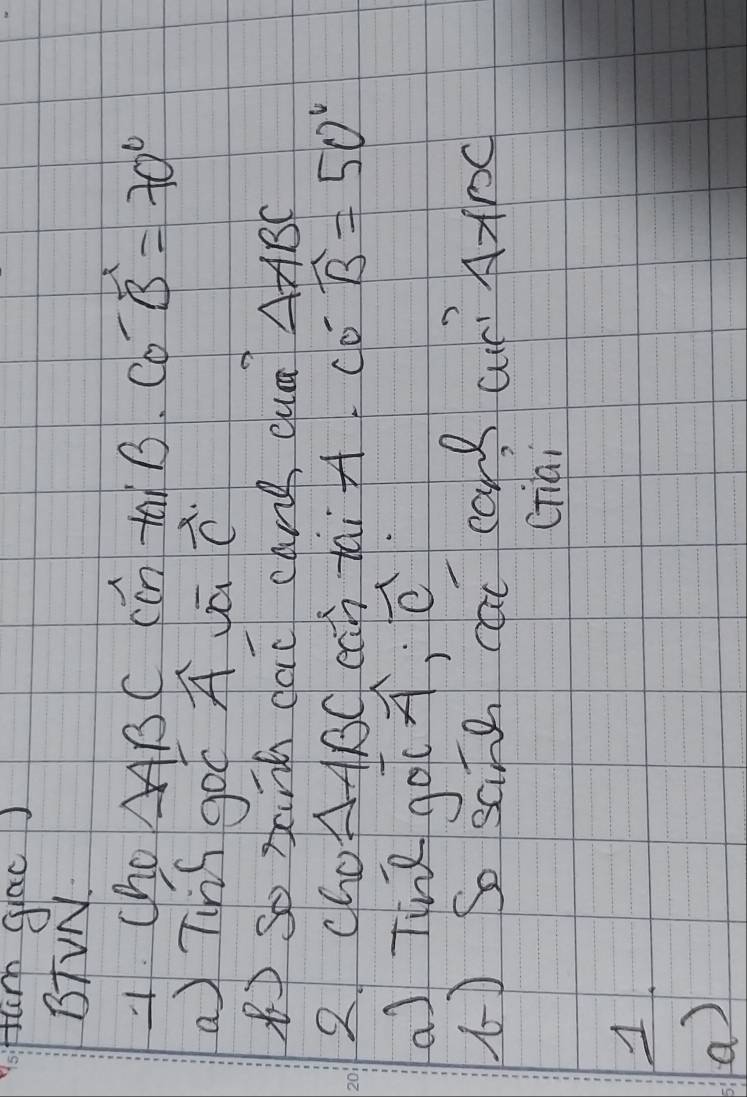 tam giác)
BTVN.
1. Cho ΔABC cân tại B. Có B̂ = 70°
a) Tính góc Â và Ĉ.
b) So sánh các cạnh của ΔABC
2. Cho ΔABC cân tại A. Có B̂ = 50°
a) Tính góc Â, Ĉ.
b) So sánh các cạnh của ΔABC
Giải
1.
a)
15
20
5